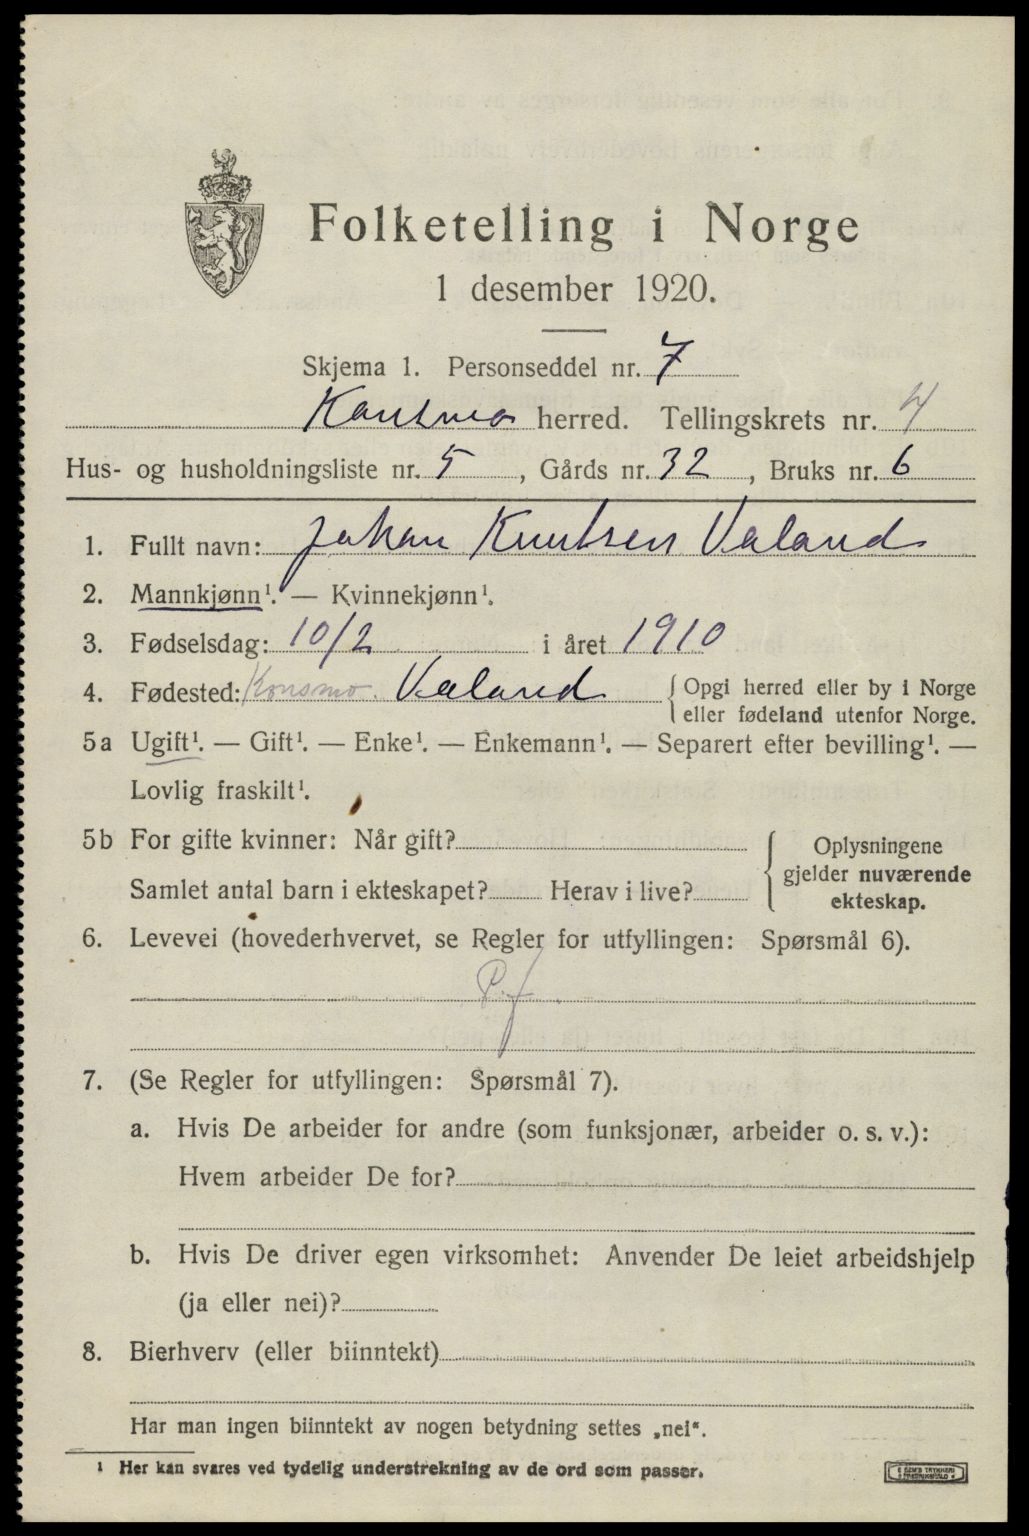 Folketelling i Norge
1 desember 1920.
Skjema 1. Personseddel nr. 7
Konsmo herred. Tellingskrets nr. 4
Hus- og husholdningsliste nr. 5, Gårds nr. 32, Bruks nr. 6
1. Fullt navn: Johan Knutsen Valand
2. Mannkjønn¹. — Kvinnekjønn¹.
3. Fødselsdag: 10/2 i året 1910
4. Fødested: Konsmo. Valand { Opgi herred eller by i Norge
eller fødeland utenfor Norge.
5a Ugift¹. — Gift¹. — Enke¹. — Enkemann¹. — Separert efter bevilling¹. —
Lovlig fraskilt¹.
5b For gifte kvinner: Når gift?
Samlet antal barn i ekteskapet? Herav i live?
{ Oplysningene
gjelder nuværende
ekteskap.
6. Levevei (hovederhvervet, se Regler for utfyllingen: Spørsmål 6).
P. f
7. (Se Regler for utfyllingen: Spørsmål 7).
a. Hvis De arbeider for andre (som funksjonær, arbeider o. s. v.):
Hvem arbeider De for?
b. Hvis De driver egen virksomhet: Anvender De leiet arbeidshjelp
(ja eller nei)?
8. Bierhverv (eller biinntekt)
Har man ingen biinntekt av nogen betydning settes „nei“.
¹ Her kan svares ved tydelig understrekning av de ord som passer.